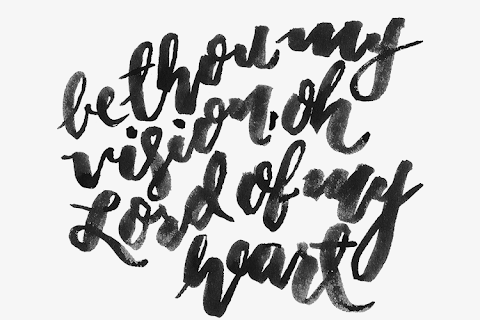 be thou my
vision, oh
Lord of my
heart